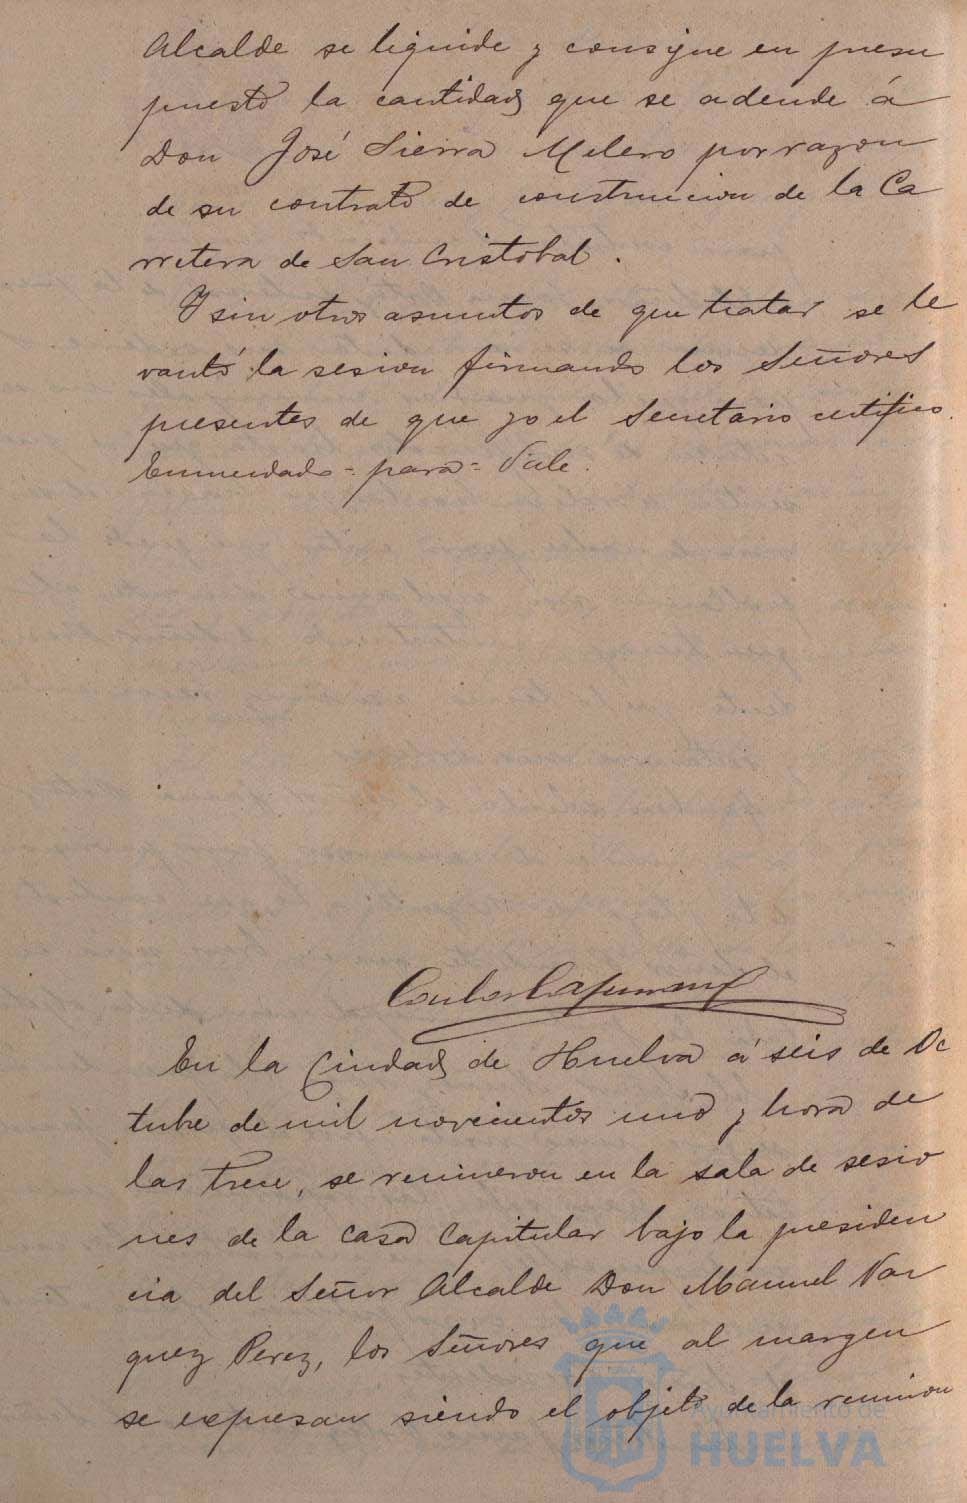 Alcalde se liquide y consigne en presu
puesto la cantidad que se adeude á
Don José Sierra Melero por razon
de su contrato de construccion de la Ca
rretera de San Cristobal.
Y sin otros asuntos de que tratar se le
vantó la sesion firmando los Señores
presentes de que yo el Secretario certifico.
Enmendado = para = Vale.
En la Ciudad de Huelva á seis de Oc
tubre de mil novecientos uno y hora de
las trece, se reunieron en la sala de sesio
nes de la casa Capitular bajo la presiden
cia del Señor Alcalde Don Manuel Vaz
quez Perez, los Señores que al margen
se expresan siendo el objeto de la reunion
Ayuntamiento de
HUELVA